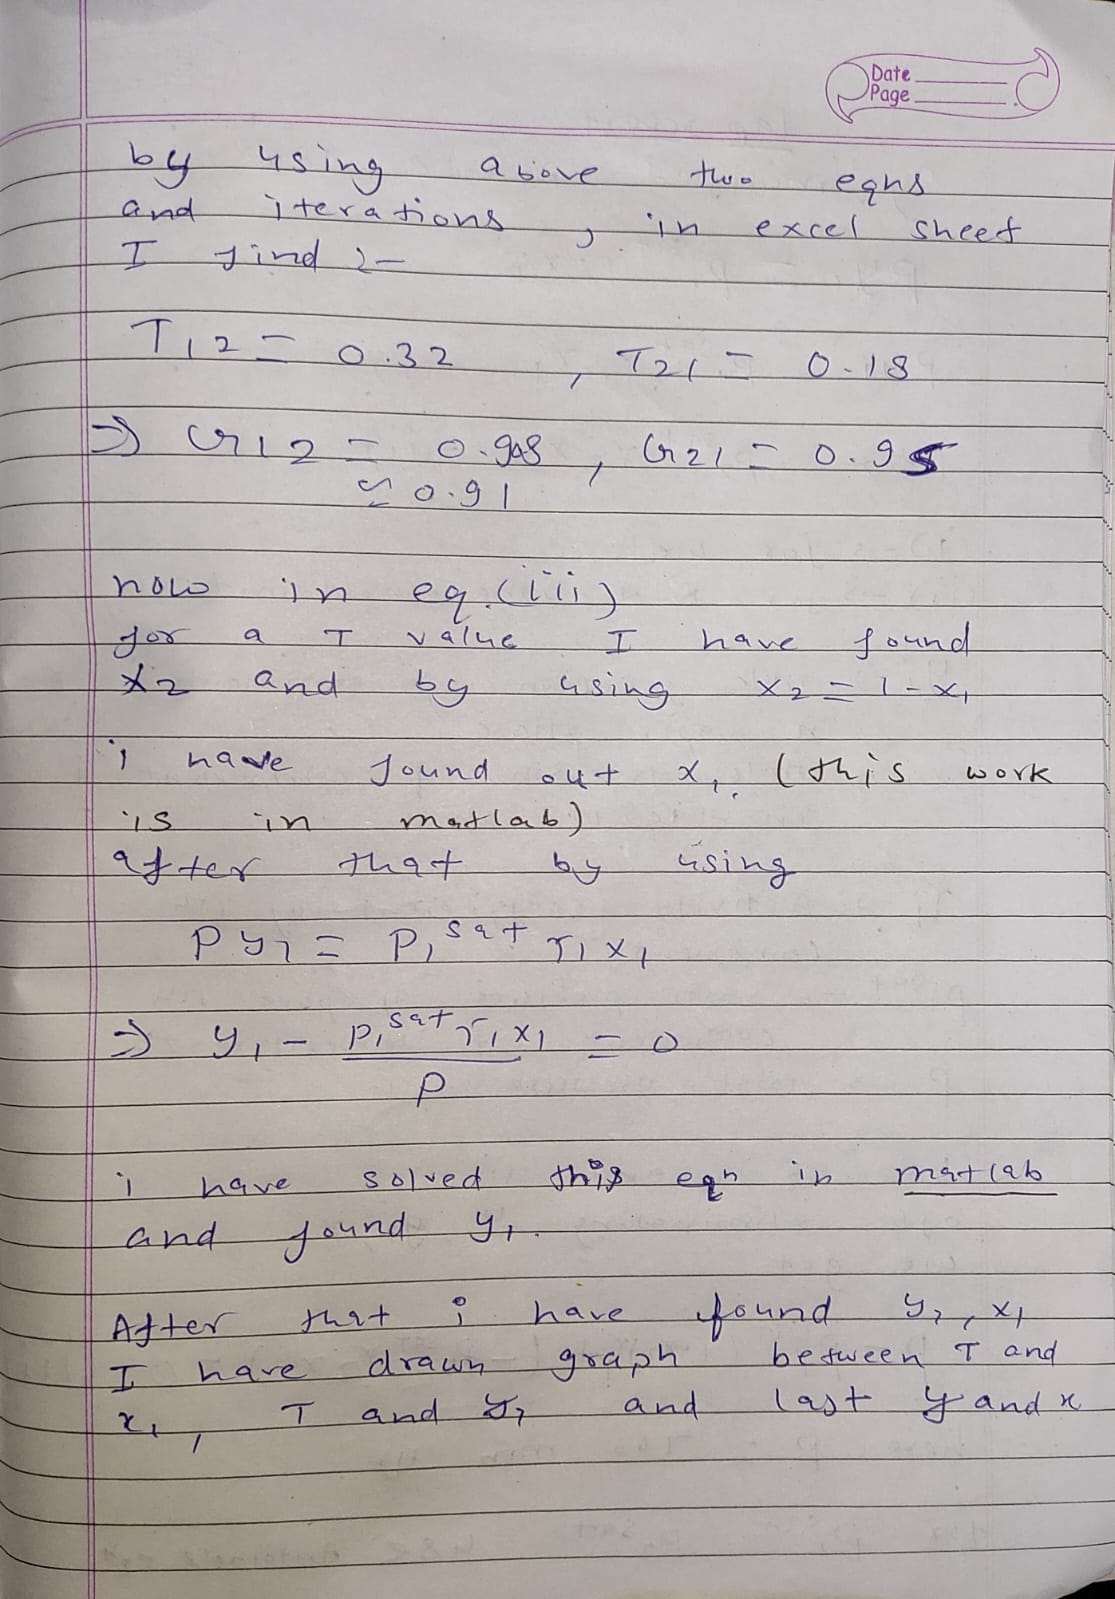 Date
Page
by using above two eqns
and iterations, in excel sheet
I find :-
T12 = 0.32 , T21 = 0.18
⇒ G12 = 0.908 , G21 = 0.95
≃ 0.91
now in eq.(iii)
for a T value I have found
x2 and by using x2 = 1-x1
i have found out x1. (this work
is in matlab)
after that by using
P y1 = P1^sat r1 x1
⇒ y1 - P1^sat r1 x1 / P = 0
i have solved this eqn in matlab
and found y1.
After that i have found y1, x1
I have drawn graph between T and
x1, T and y1 and last y and x